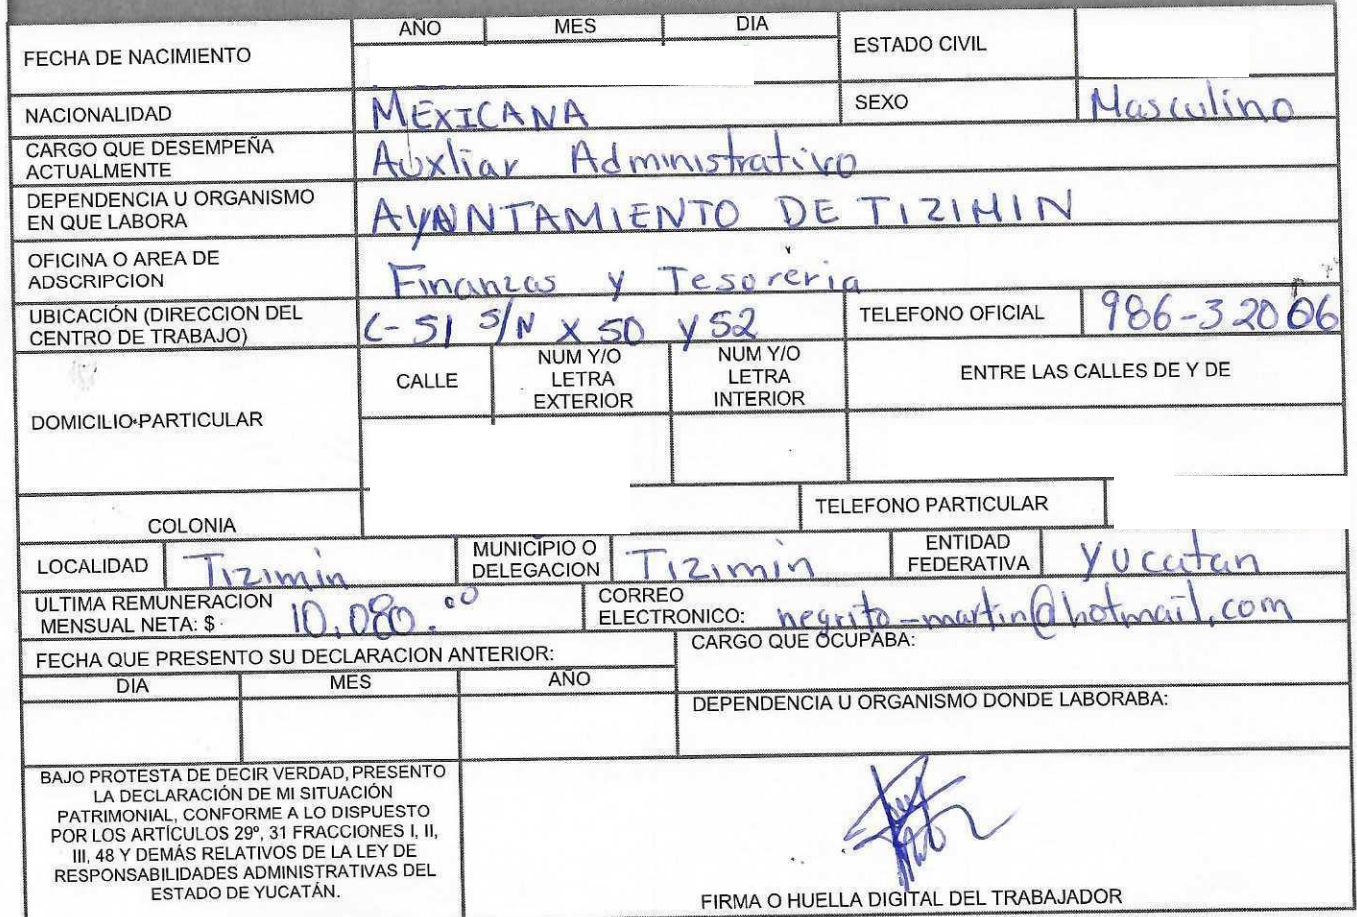 FECHA DE NACIMIENTO
AÑO MES DIA
ESTADO CIVIL
NACIONALIDAD MEXICANA SEXO Masculino
CARGO QUE DESEMPEÑA
ACTUALMENTE
Auxliar Administrativo
DEPENDENCIA U ORGANISMO
EN QUE LABORA
AYNNTAMIENTO DE TIZIMIN
OFICINA O AREA DE
ADSCRIPCION
Finanzas y Tesoreria
UBICACIÓN (DIRECCION DEL
CENTRO DE TRABAJO)
C-51 S/N X 50 y 52
TELEFONO OFICIAL 986-3 20 06
DOMICILIO PARTICULAR
CALLE
NUM Y/O
LETRA
EXTERIOR
NUM Y/O
LETRA
INTERIOR
ENTRE LAS CALLES DE Y DE
COLONIA
TELEFONO PARTICULAR
LOCALIDAD Tizimin
MUNICIPIO O
DELEGACION
Tizimin
ENTIDAD
FEDERATIVA
Yucatan
ULTIMA REMUNERACION
MENSUAL NETA: $ 10,080.00
CORREO
ELECTRONICO: negrito-martin@hotmail.com
FECHA QUE PRESENTO SU DECLARACION ANTERIOR:
DIA MES AÑO
CARGO QUE OCUPABA:
DEPENDENCIA U ORGANISMO DONDE LABORABA:
BAJO PROTESTA DE DECIR VERDAD, PRESENTO
LA DECLARACIÓN DE MI SITUACIÓN
PATRIMONIAL, CONFORME A LO DISPUESTO
POR LOS ARTÍCULOS 29º, 31 FRACCIONES I, II,
III, 48 Y DEMÁS RELATIVOS DE LA LEY DE
RESPONSABILIDADES ADMINISTRATIVAS DEL
ESTADO DE YUCATÁN.
FIRMA O HUELLA DIGITAL DEL TRABAJADOR